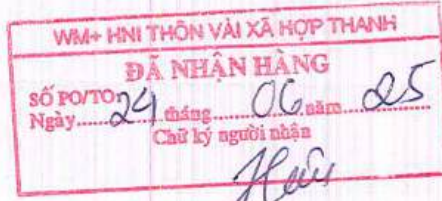 WM+ HNI THÔN VÀI XÃ HỢP THANH
ĐÃ NHẬN HÀNG
SỐ PO/TO
Ngày.....24 tháng.....06 năm 25
Chữ ký người nhận